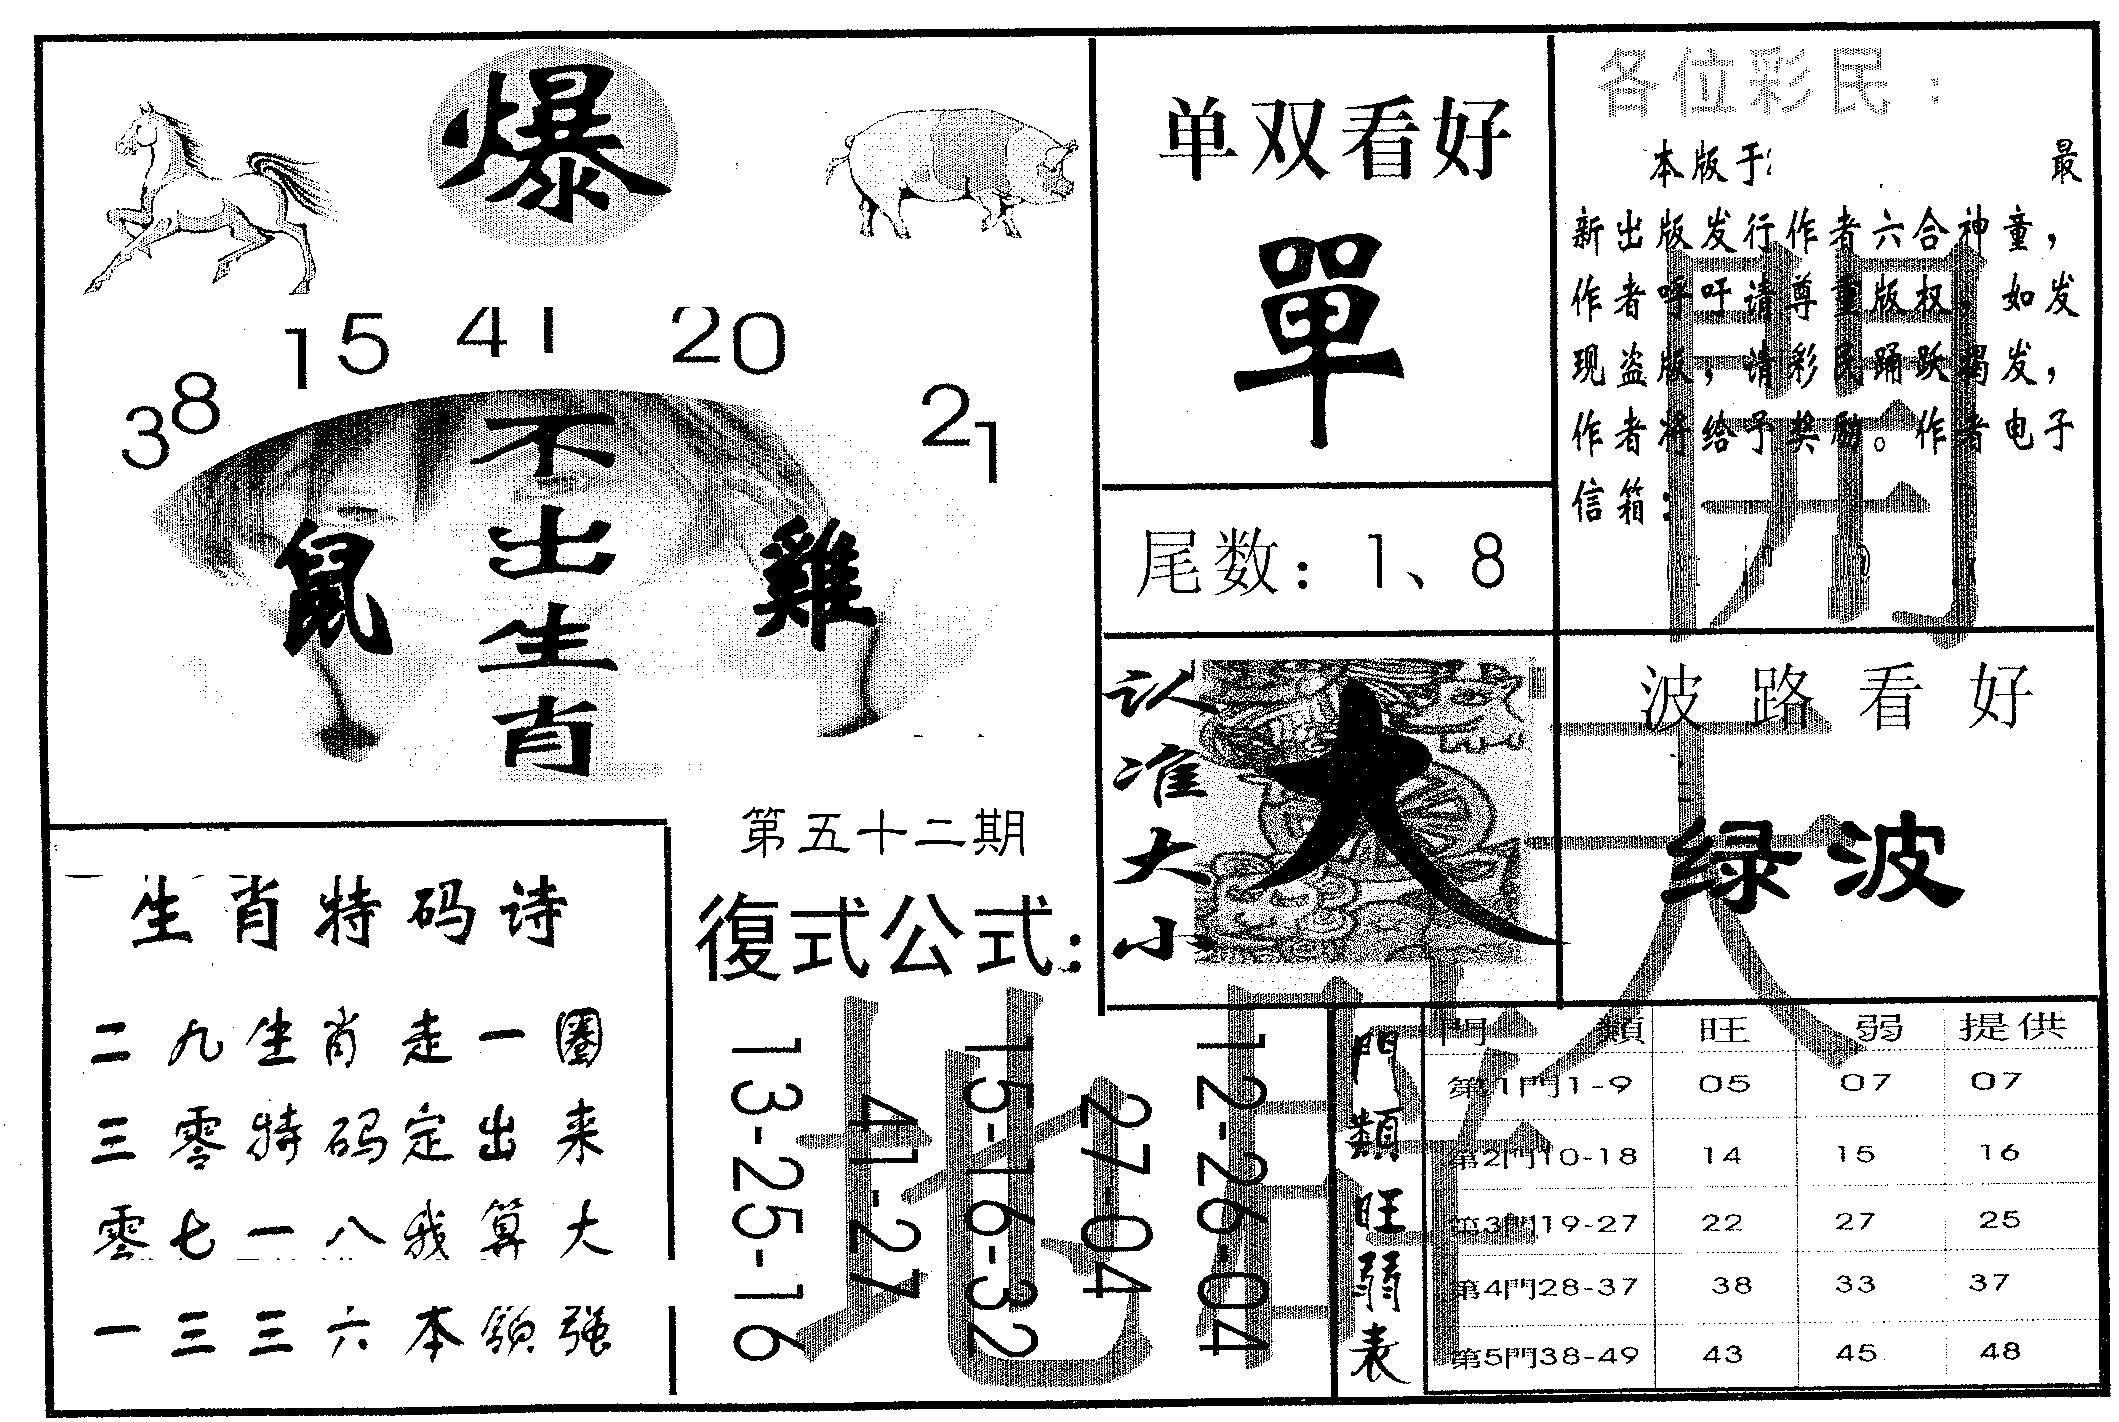 爆
38 15 41 20 21
不出生肖
鼠 雞
单双看好
單
尾数：1、8
各位彩民：
本版于 最
新出版发行作者六合神童，
作者呼吁请尊重版权。如发
现盗版，请彩民踊跃揭发，
作者将给予奖励。作者电子
信箱：
认准大小
大
波路看好
绿波
生肖特码诗
二九生肖走一圈
三零特码定出来
零七一八我算大
一三三六本领强
第五十二期
復式公式：
13-25-16
41-27
15-16-32
27-04
12-26-04
門類旺弱表
門類 旺 弱 提供
第1門1-9 05 07 07
第2門10-18 14 15 16
第3門19-27 22 27 25
第4門28-37 38 33 37
第5門38-49 43 45 48